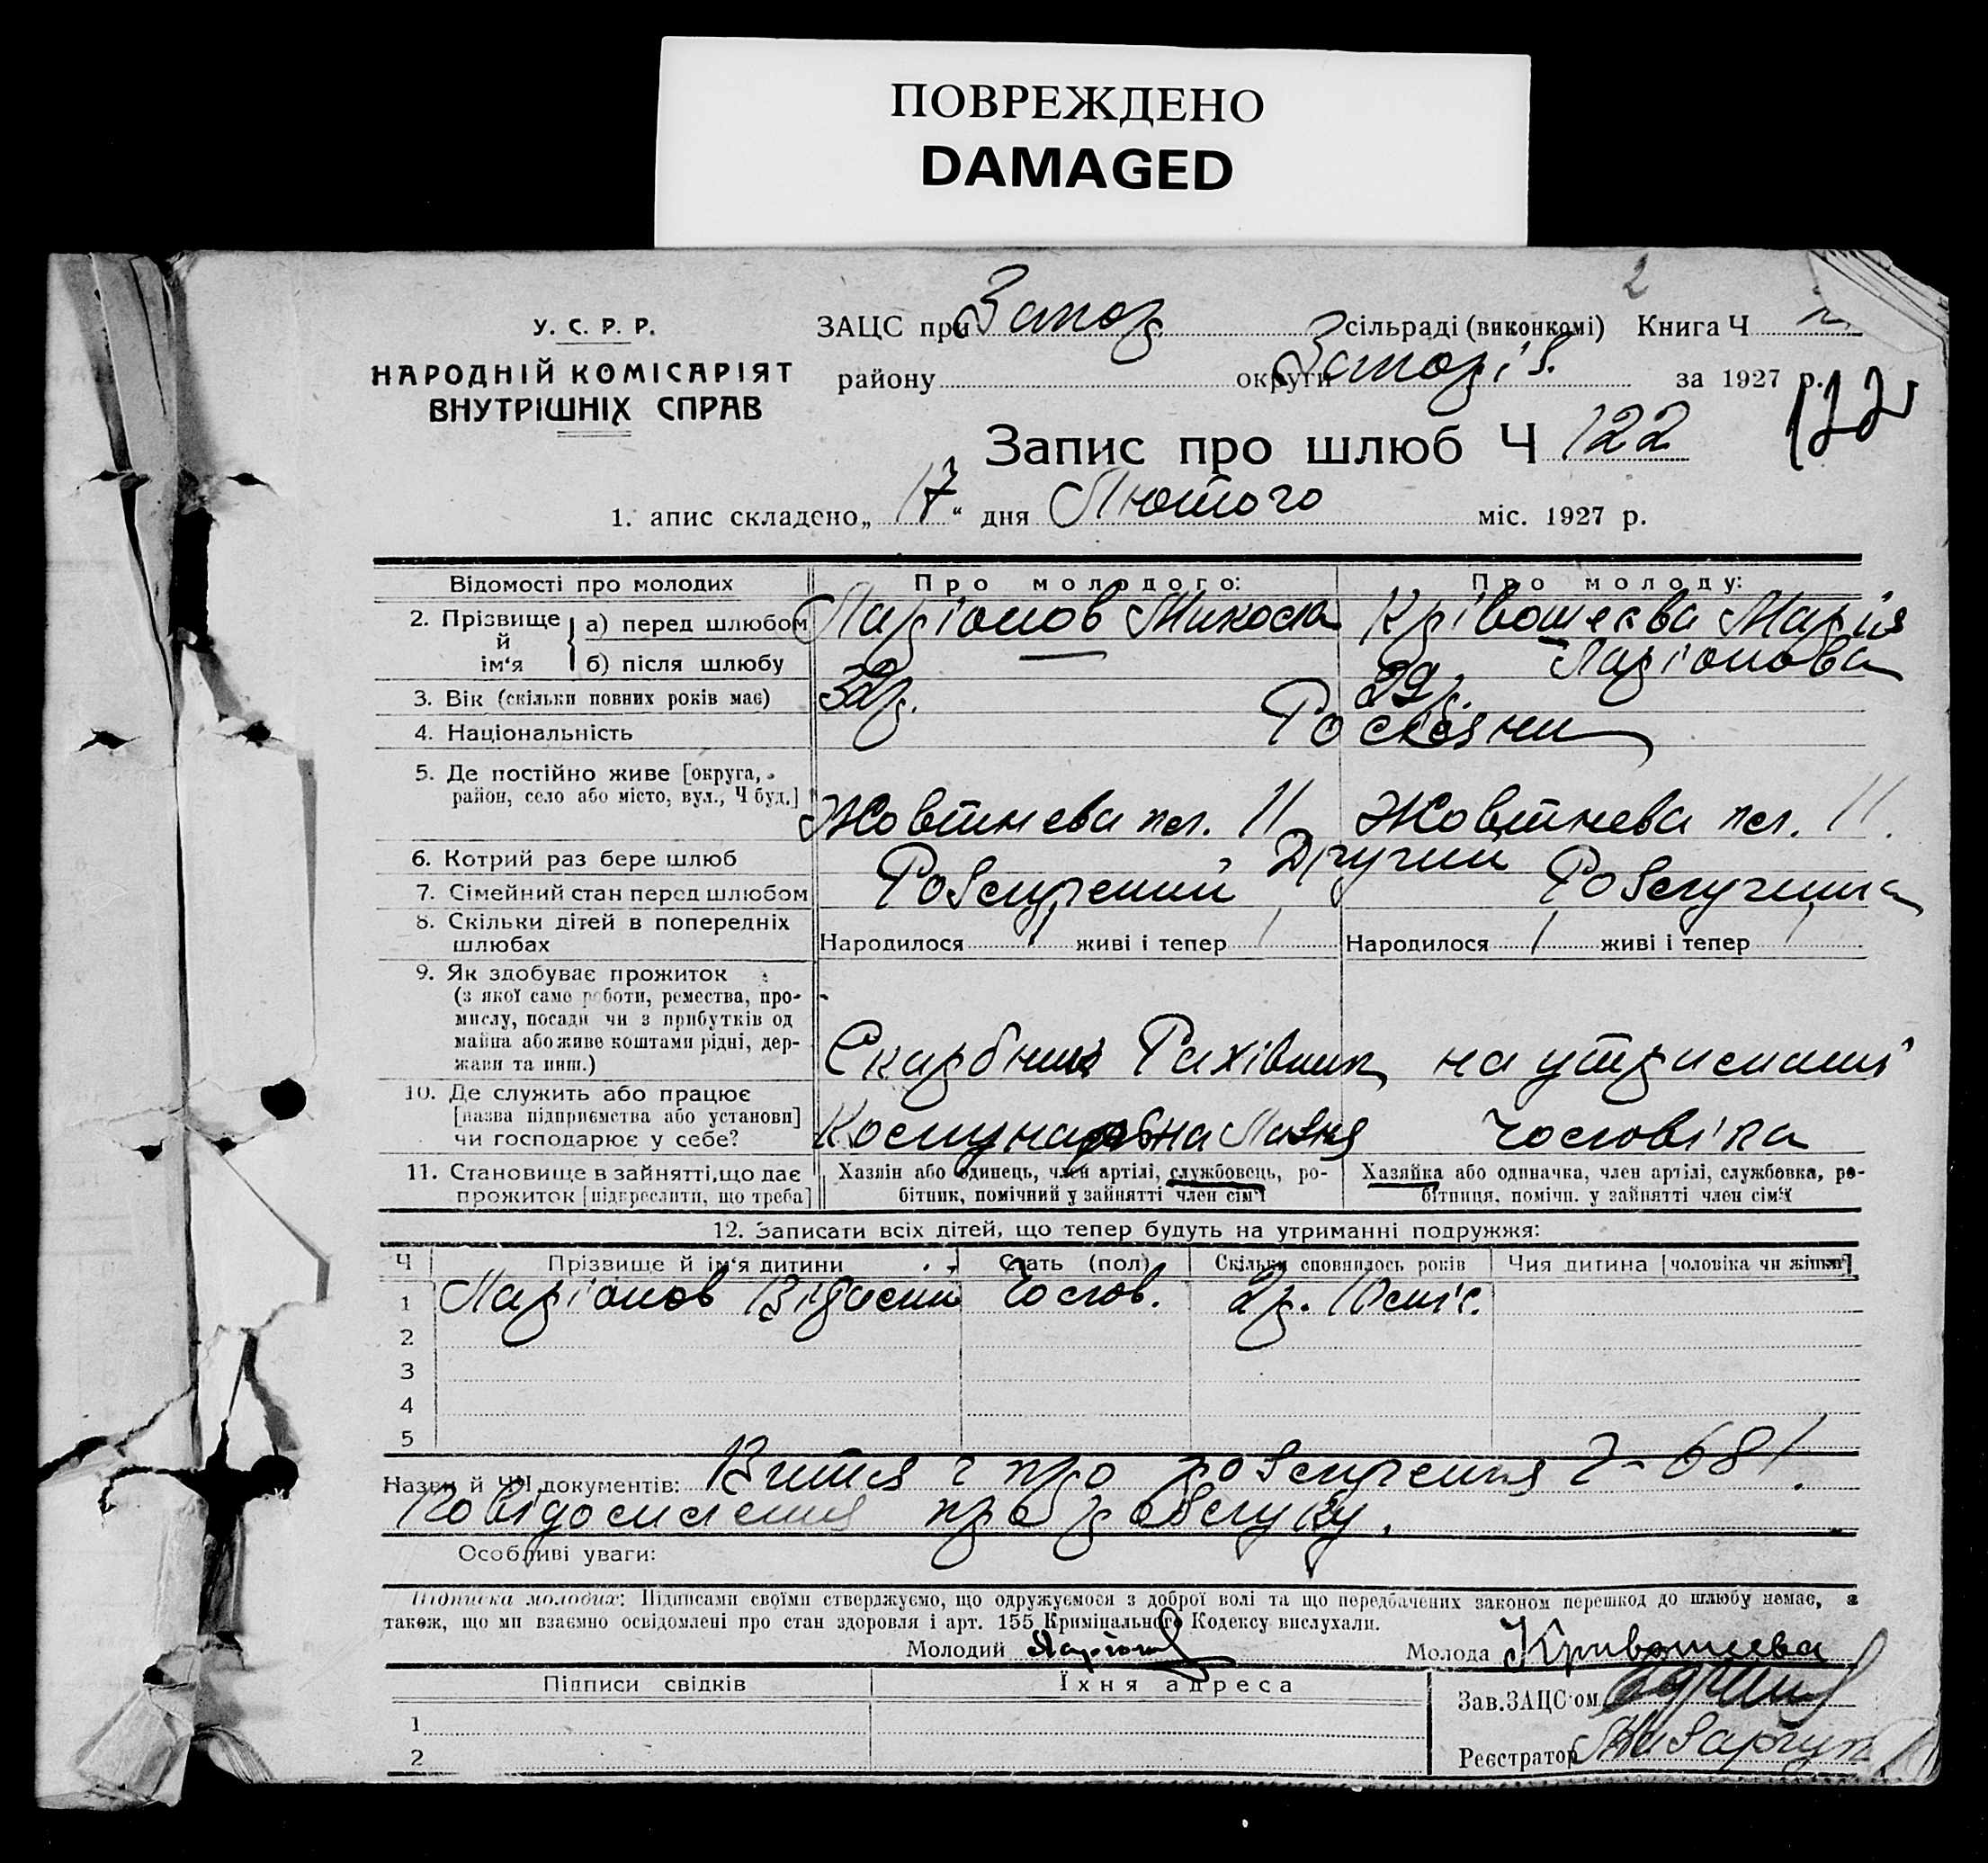 ПОВРЕЖДЕНО
DAMAGED
2
У. С. Р. Р.
НАРОДНІЙ КОМІСАРІЯТ
ВНУТРІШНІХ СПРАВ
ЗАЦС при Запор сільраді (виконкомі) Книга Ч
району округи Запоріз. за 1927 р.
122
Запис про шлюб Ч 122
1. апис складено „ 17 “ дня Лютого міс. 1927 р.
Відомості про молодих Про молодого: Про молоду:
2. Прізвище й ім‘я а) перед шлюбом Ларіонов Микола Крівошеєва Марія
б) після шлюбу Ларіонова
3. Вік (скільки повних років має) 32р. 29р.
4. Національність Росіяни
5. Де постійно живе [округа,
район, село або місто, вул., Ч буд.] Жовтнева пл. 11 Жовтнева пл. 11.
6. Котрий раз бере шлюб Другий
7. Сімейний стан перед шлюбом Розлучений Розлучина
8. Скільки дітей в попередніх
шлюбах Народилося 1 живі і тепер 1 Народилося 1 живі і тепер 1
9. Як здобуває прожиток
(з якої саме роботи, ремества, про-
мислу, посади чи з прибутків од
майна або живе коштами рідні, дер-
жави та инш.) Скарбник Рахівник на утриманні
10. Де служить або працює
[назва підприємства або установи]
чи господарює у себе? Комунальна Лазня чоловіка
11. Становище в зайнятті, що дає
прожиток [підкреслити, що треба]
Хазяїн або одинець, член артілі, службовець, ро-
бітник, помічний у зайнятті член сім‘ї
Хазяйка або одиначка, член артілі, службовка, ро-
бітниця, помічн. у зайнятті член сім‘ї
12. Записати всіх дітей, що тепер будуть на утриманні подружжя:
Ч Прізвище й ім‘я дитини Стать (пол) Скільки сповнилось років Чия дитина [чоловіка чи жінки]
1 Ларіонов чолов. 2р. 10 міс.
2
3
4
5
Назви й ЧЧ документів: Витяг про розлучення Ч-681.
Повідомлення про розлуку.
Особливі уваги:
Підписка молодих: Підписами своїми стверджуємо, що одружуємося з доброї волі та що передбачених законом перешкод до шлюбу немає, а
також, що ми взаємно освідомлені про стан здоровля і арт. 155 Кримінального Кодексу вислухали.
Молодий Ларіонов Молода Кривошеева
Підписи свідків Їхня адреса
Зав. ЗАЦС‘ом
1
2
Реєстратор